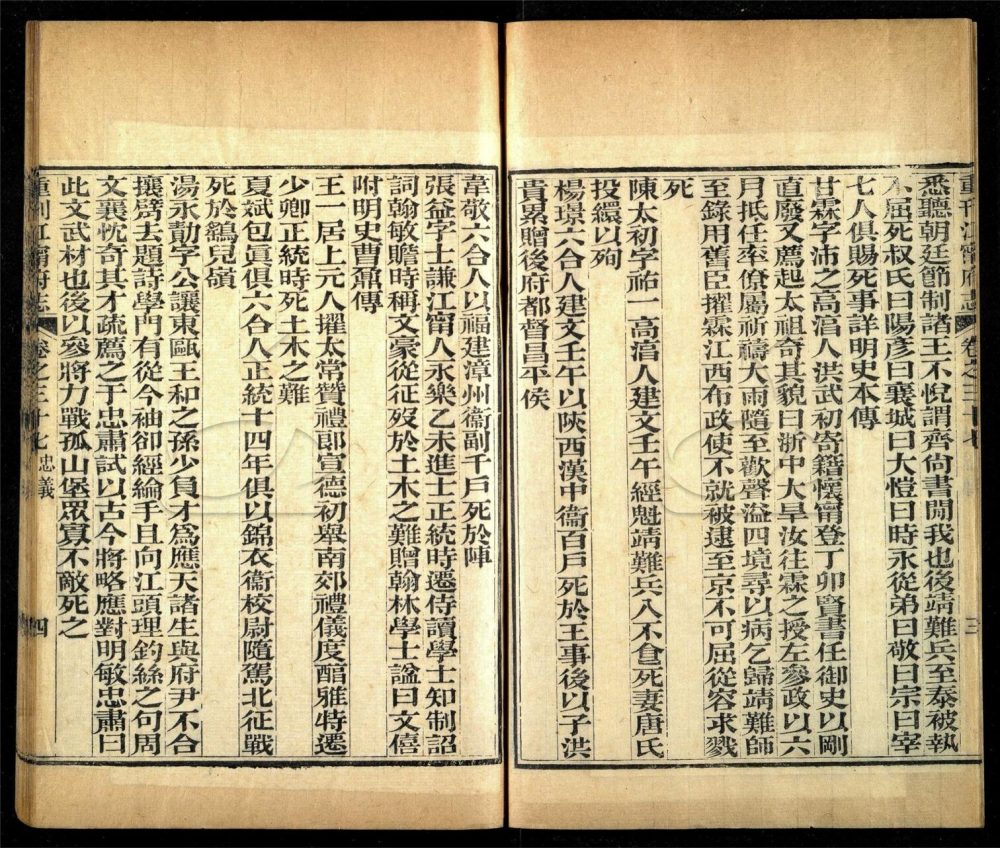 重刊江甯府志 卷之三十七 三
悉聽朝廷節制諸王不悅謂齊尙書閒我也後靖難兵至泰被執
不屈死叔氏曰陽彥曰襄城曰大愷曰時永從弟曰敬曰宗曰宰
七人俱賜死事詳明史本傳
甘霖字沛之高湻人洪武初寄籍懷甯登丁卯賢書任御史以剛
直廢又薦起太祖奇其貌曰浙中大旱汝往霖之授左參政以六
月抵任率僚屬祈禱大雨隨至歡聲溢四境尋以病乞歸靖難師
至錄用舊臣擢霖江西布政使不就被逮至京不可屈從容求戮
死
陳太初字祐一高湻人建文壬午經魁靖難兵入不食死妻唐氏
投繯以殉
楊璟六合人建文壬午以陝西漢中衞百戶死於王事後以子洪
貴累贈後府都督昌平侯
韋敬六合人以福建漳州衞副千戶死於陣
張益字士謙江甯人永樂乙未進士正統時遷侍讀學士知制詔
詞翰敏贍時稱文豪從征歿於土木之難贈翰林學士諡曰文僖
附明史曹鼐傳
王一居上元人擢太常贊禮郞宣德初舉南郊禮儀度醞雅特遷
少卿正統時死土木之難
夏斌包眞俱六合人正統十四年俱以錦衣衞校尉隨駕北征戰
死於鷂兒嶺
湯永勣字公讓東甌王和之孫少負才爲應天諸生與府尹不合
攘臂去題詩學門有從今袖卻經綸手且向江頭理釣絲之句周
文襄忱奇其才疏薦之于忠肅試以古今將略應對明敏忠肅曰
此文武材也後以參將力戰孤山堡眾寡不敵死之
重刊江甯府志 卷之三十七 忠義 四